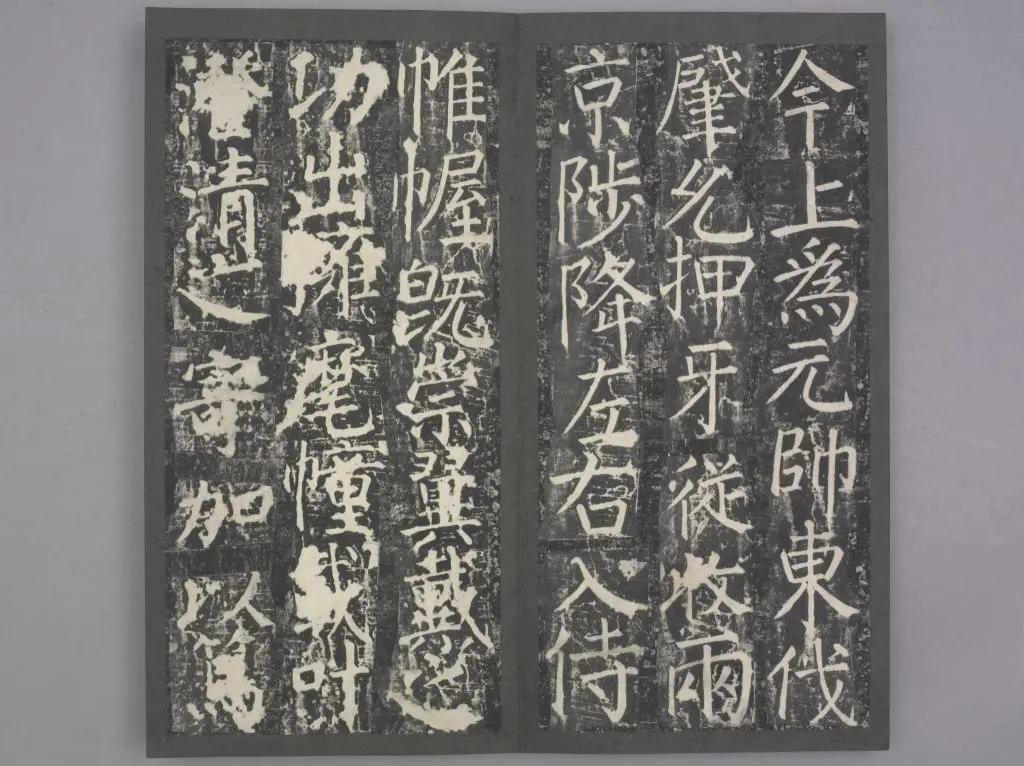 今上為元帥東伐
肇允押牙從收兩
京陟降左右入侍
帷幄既崇翼戴之
功出擁麾幢叶
澄清之寄加以篤